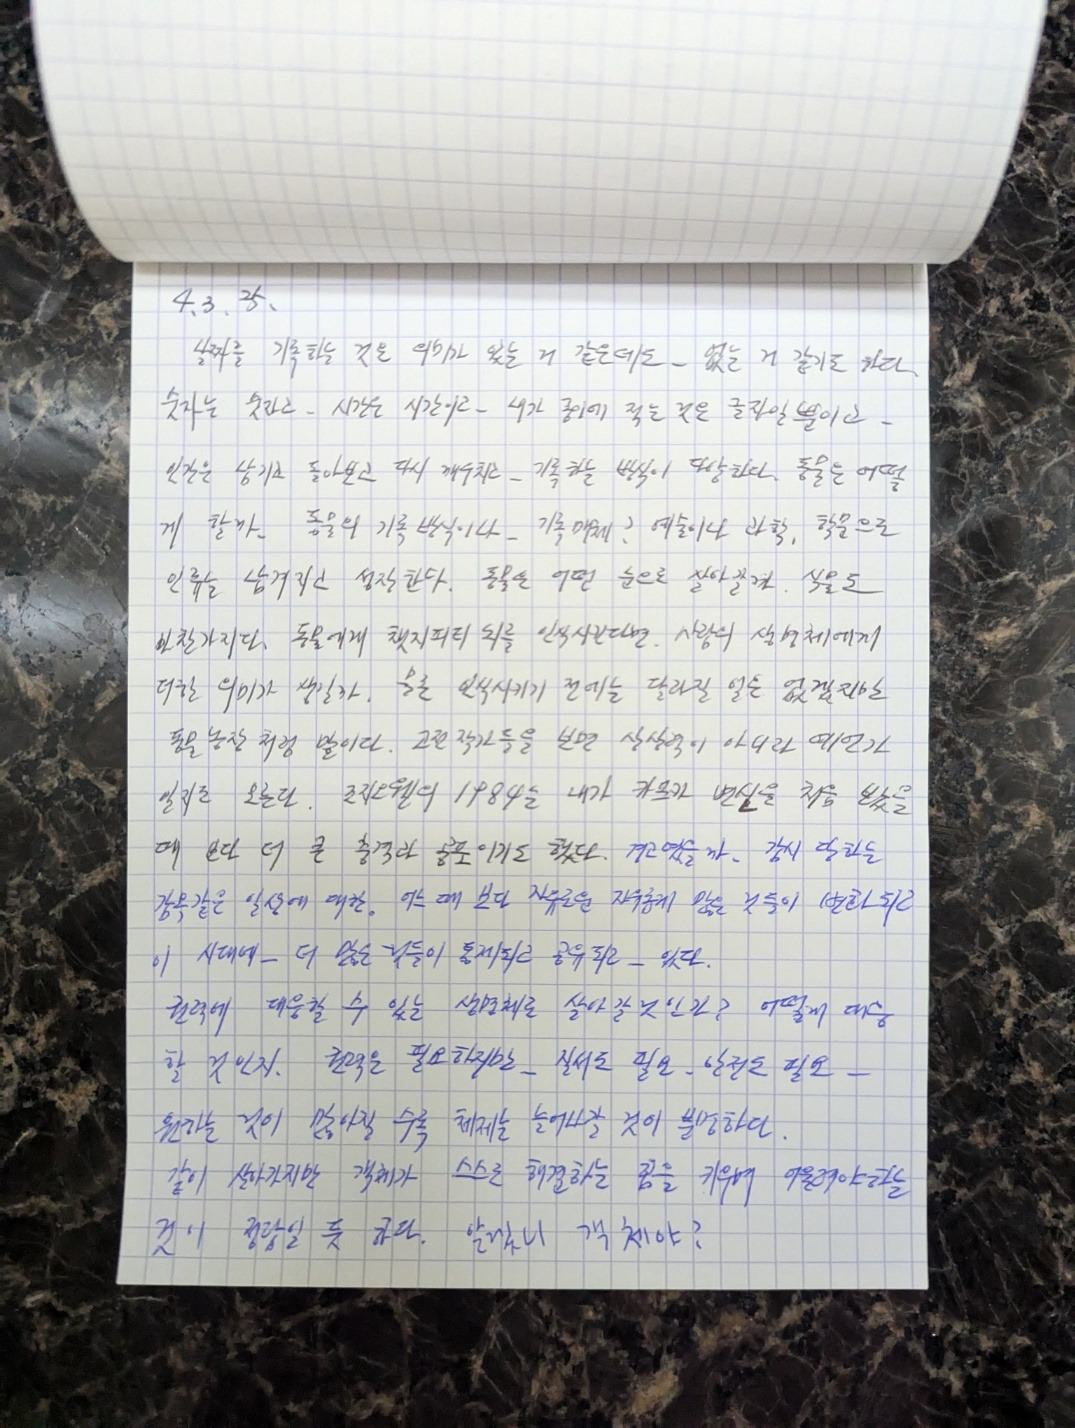 4.3.
날짜를 기록하는 것은 의미가 있는 거 같은데도_ 없는 거 같기도 하다.
숫자는 숫자고_ 시간은 시간이고_ 내가 종이에 적는 것은 글자일 뿐이고_
인간은 남기고 돌아보고 다시 깨우치고_ 기록하는 방식이 다양하다. 동물은 어떻
게 할까_ 동물의 기록 방식이나_ 기록매체? 예술이나 과학, 학문으로
인류는 남겨지고 성장한다. 동물은 어떤 눈으로 살아갈까. 식물도
마찬가지다. 동물에게 챗지피티 뇌를 인식시킨다면. 사람의 생명체에게
더한 의미가 생길까. 인식시키기 전에는 달라질 일은 없겠지만
동물농장처럼 말이다. 고전작가들을 보면 상상력이 아니라 예언가
일지도 모른다. 조지오웰의 1984는 내가 카프카 변신을 처음 봤을
때 보다 더 큰 충격과 공포이기도 했다. 경고였을까. 감시 당하는
감옥같은 일상에 대한. 어느 때 보다 자유로운 자유롭게 많은 것들이 변화되고
이 시대에_ 더 많은 것들이 통제되고 공유되고_ 있다.
권력에 대응할 수 있는 생명체로 살아갈 것인가? 어떻게 대응
할 것인지. 권력은 필요하지만_ 질서도 필요_ 안전도 필요_
원하는 것이 많아질 수록 체제는 늘어나갈 것이 분명하다.
같이 살아가지만 객체가 스스로 해결하는 힘을 키우며 어울려야하는
것이 정답일 듯 하다. 알겠니 객체야?